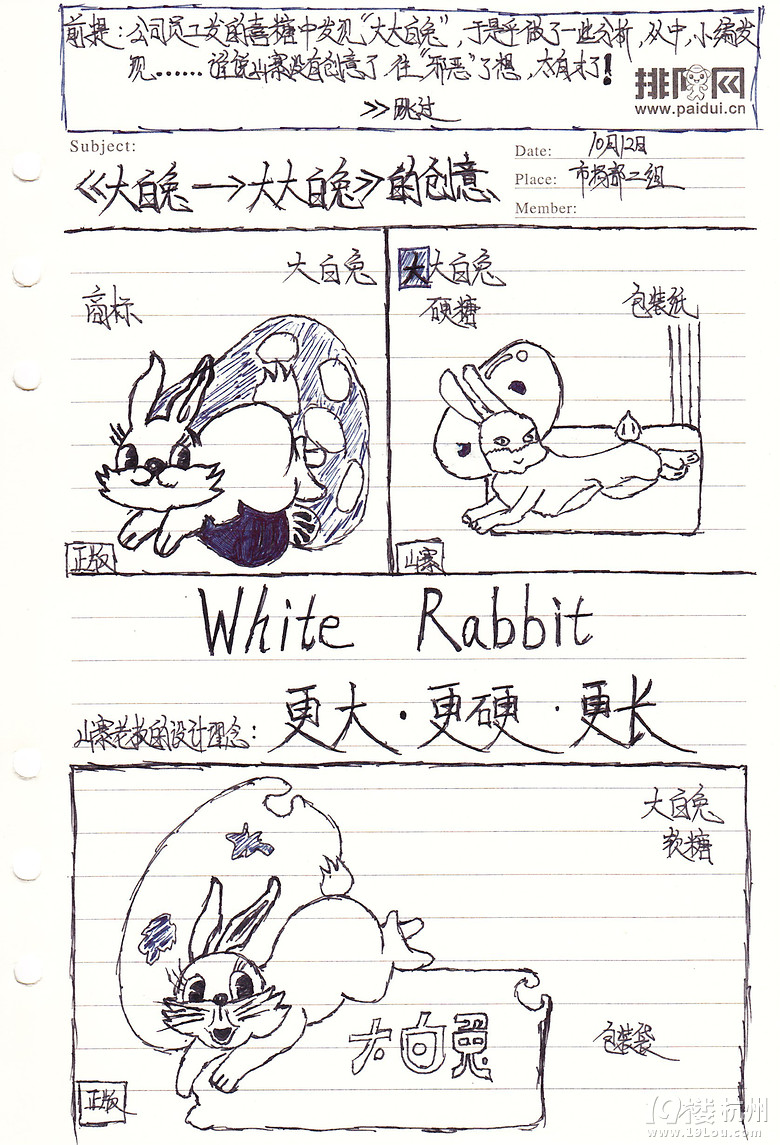 前提：公司员工发的喜糖中发现“大大白兔”，于是乎做了一些分析，从中，小编发
现……谁说山寨没有创意了，往“邪恶”了想，太有才了！
>>跳过
排队网
www.paidui.cn
Subject:
《大白兔→大大白兔》的创意
Date: 10月12日
Place: 市场部二组
Member:
大白兔
商标
正版
大大白兔
硬糖
包装纸
山寨
White Rabbit
山寨老板的设计理念：更大·更硬·更长
大白兔
软糖
大白兔
包装袋
正版
19楼杭州
www.19lou.com